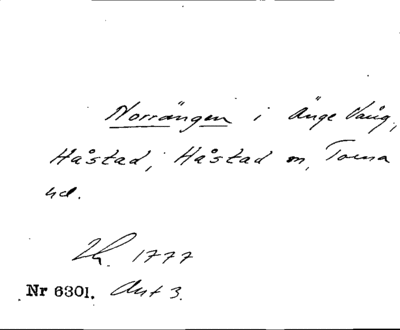 Norrängen i Änge Vång,
Håstad, Håstad sn, Torna
hd.
Lh. 1777
Nr 6301. Akt 3.